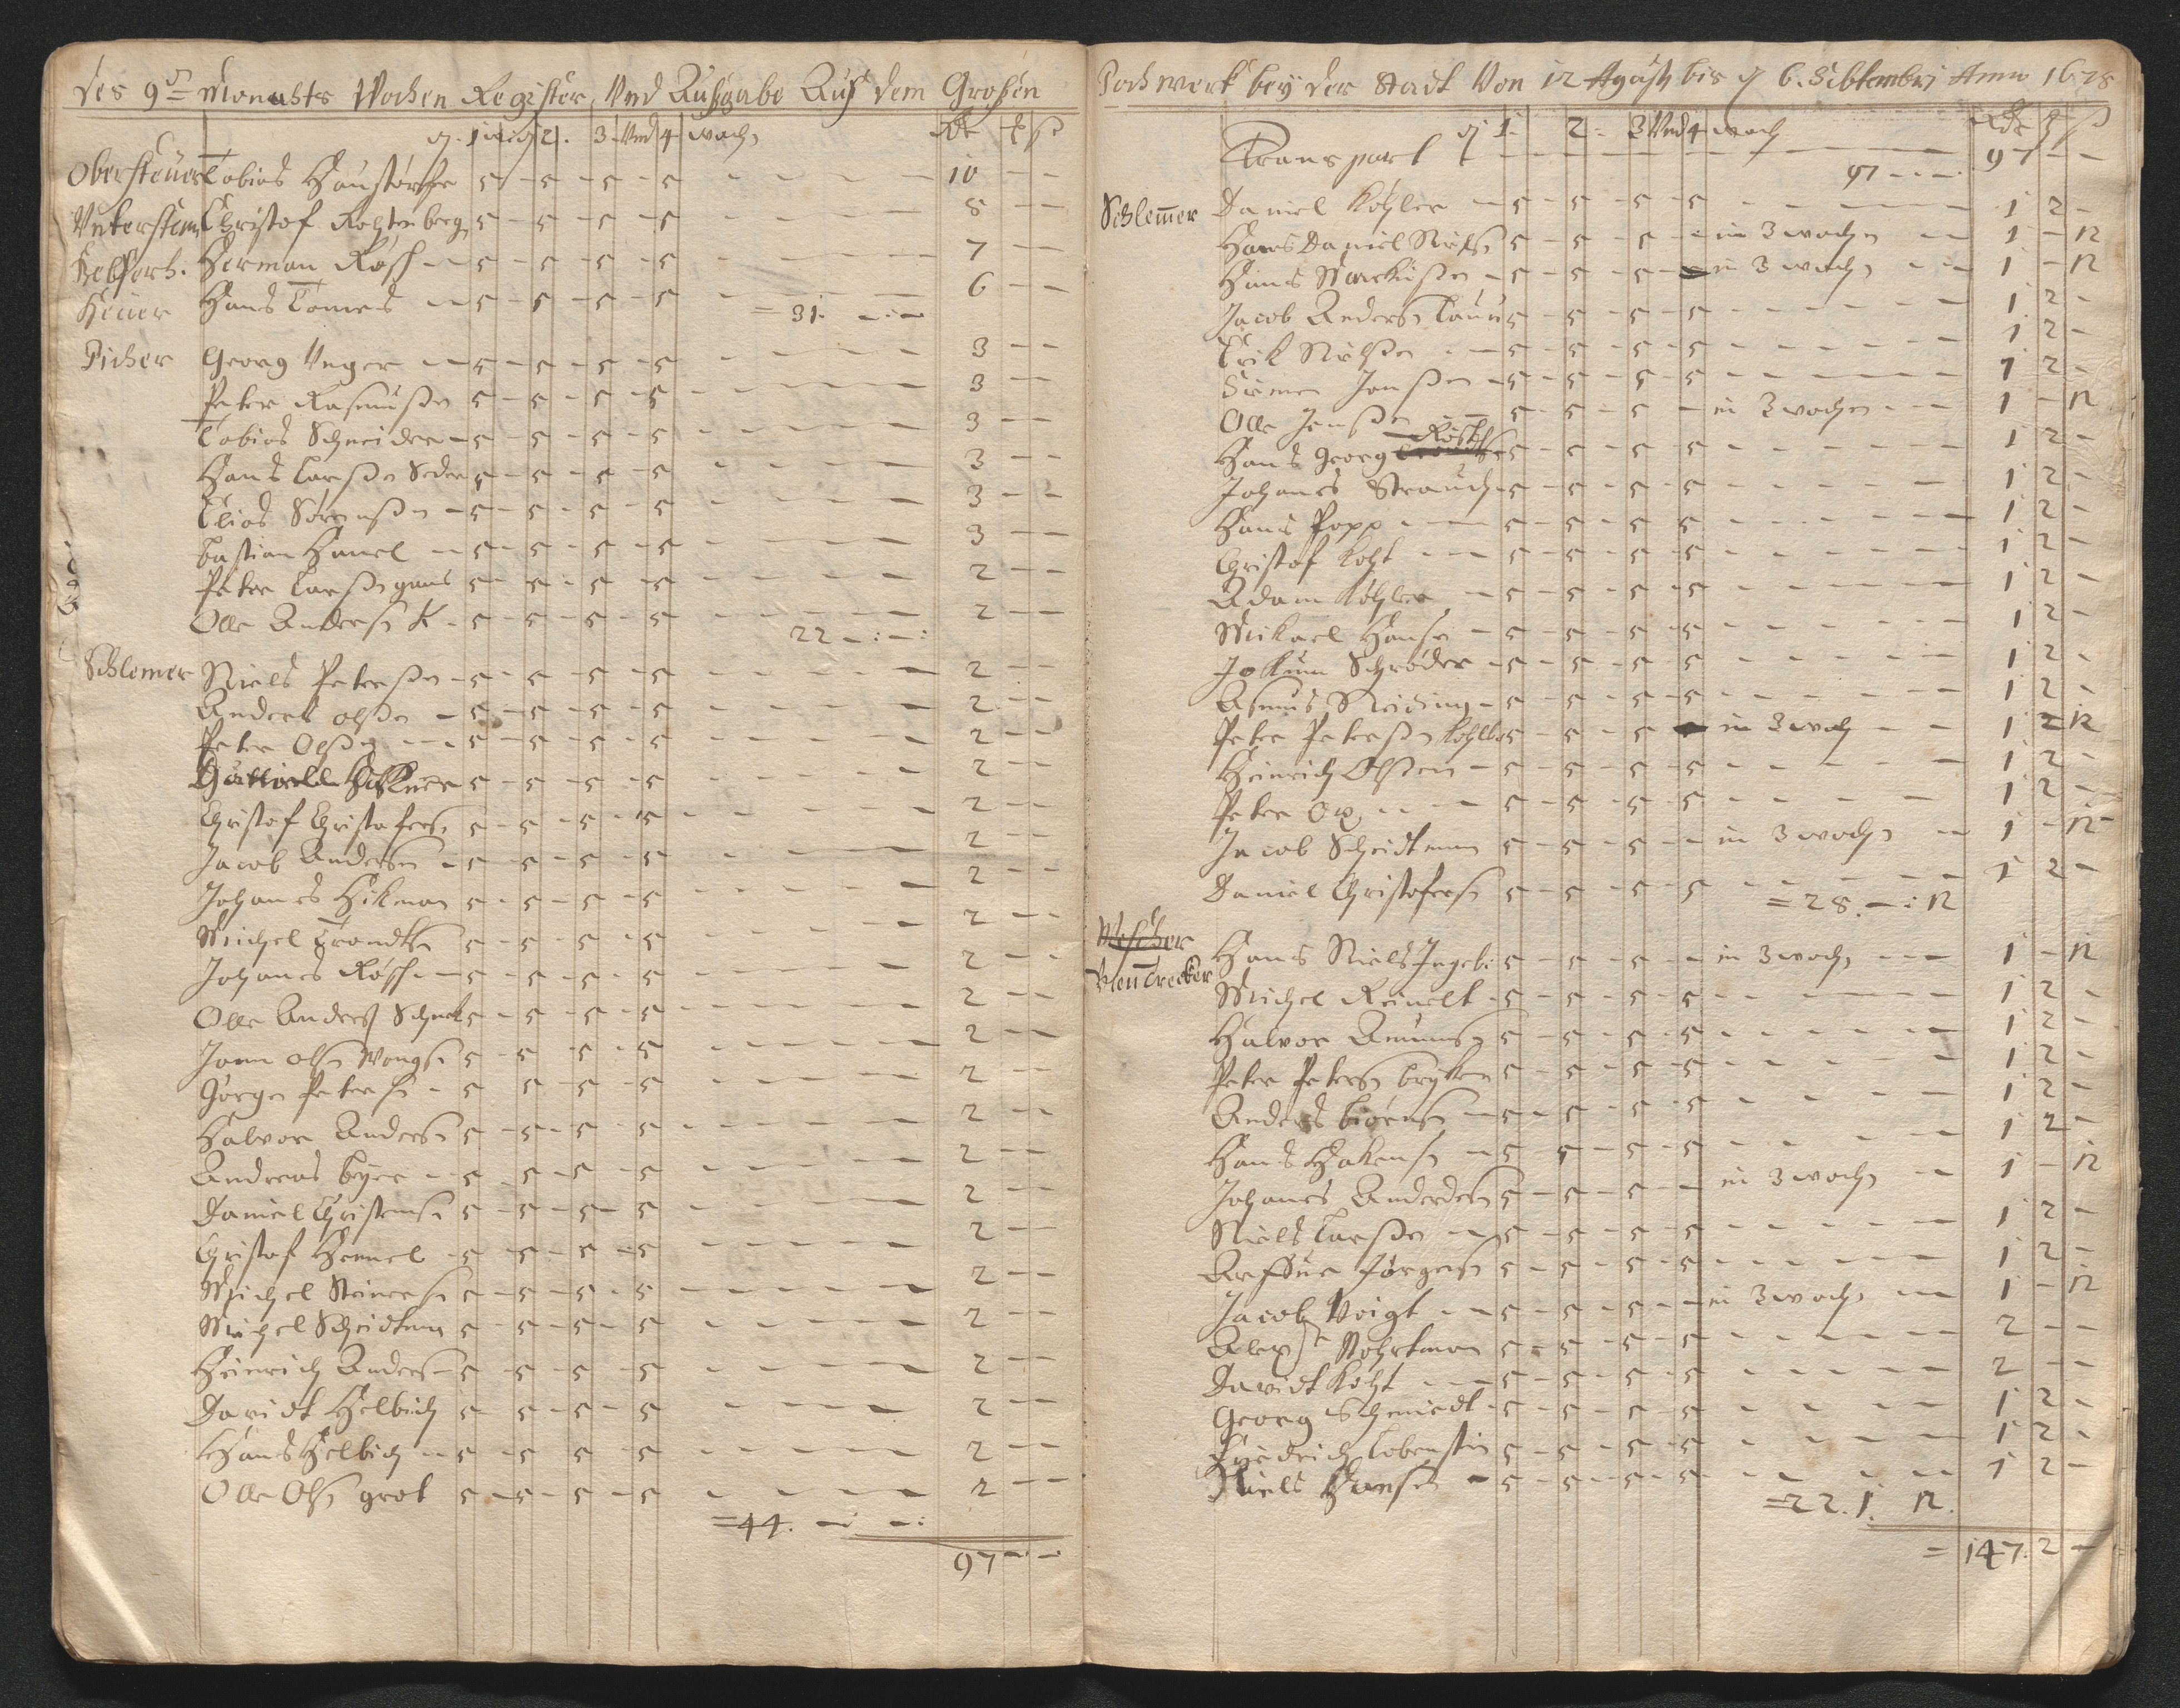 des 9t Monahts Wochen Register, Vnd Außgabe Auß dem Großen
1 2. 3. Vnd 4 woch
Obersteiger Tobias 5 – 5 – 5 – 5 – – – – – 10 – –
Vntersteiger Christof 5 – 5 – 5 – 5 – – – – – 8 – –
Herman Rösch – – 5 – 5 – 5 – 5 – – – – – 7 – –
Hans Tomes – – 5 – 5 – 5 – 5 – – – – – 6 – –
= 31. – : –
Picher Georg Vnger – – 5 – 5 – 5 – 5 – – – – – 3 – –
Peter Rasmußen 5 – 5 – 5 – 5 – – – – – 3 – –
Tobias Schneider – 5 – 5 – 5 – 5 – – – – – 3 – –
Hans Larßen 5 – 5 – 5 – 5 – – – – – 3 – –
Elias Sörenßen – 5 – 5 – 5 – 5 – – – – – 3 – –
bastian Hamel – – 5 – 5 – 5 – 5 – – – – – 3 – –
Peter Larßen 5 – 5 – 5 – 5 – – – – – 2 – –
Olle Anderßn K – 5 – 5 – 5 – 5 – – – – – 2 – –
22 – : – :
Schlemer Niels Peterßen – 5 – 5 – 5 – 5 – – – – – 2 – –
Anders olßen – 5 – 5 – 5 – 5 – – – – – 2 – –
Peter Olßen – – 5 – 5 – 5 – 5 – – – – – 2 – –
5 – 5 – 5 – 5 – – – – – 2 – –
Christof Christofers 5 – 5 – 5 – 5 – – – 2 – –
Jacob Anderßen – 5 – 5 – 5 – 5 – – – – – 2 – –
Johanes Hikman 5 – 5 – 5 – 5 – – – – – 2 – –
Michel Trondtß 5 – 5 – 5 – 5 – – – 2 – –
Johanes Rösch – – 5 – 5 – 5 – 5 – – – – – 2 – –
Olle Anderß 5 – 5 – 5 – 5 – – – – – 2 – –
Joen olßn 5 – 5 – 5 – 5 – – – – – 2 – –
Jörgen Peterßn – 5 – 5 – 5 – 5 – – – – – 2 – –
Halvor Anderßn 5 – 5 – 5 – 5 – – – – – 2 – –
Andreas beyer – – 5 – 5 – 5 – 5 – – – – – 2 – –
Daniel Christenß 5 – 5 – 5 – 5 – – – – – 2 – –
Christof Hemel – 5 – 5 – 5 – 5 – – – – – 2 – –
Michel Steinerß 5 – 5 – 5 – 5 – – – – – 2 – –
Michel Scheidtman 5 – 5 – 5 – 5 – – – – – 2 – –
Heinrich Anders – 5 – 5 – 5 – 5 – – – – – 2 – –
Davidt Helbich 5 – 5 – 5 – 5 – – – – – 2 – –
Hans Helbich – – 5 – 5 – 5 – 5 – – – – – 2 – –
Olle Olßn grot 5 – 5 – 5 – 5 – – – – – 2 – –
= 44. – : – :
97 – : – :
Pochwerk bey der Stadt Von 12 Agusti bis d 6. Sibtembri Anno 1678
1. 2. 3 Vnd 4 woch
Transport – – – – – – – 97 – –
97 – : – :
Schlemer Daniel Köhler – 5 – 5 – 5 – 5 – – – – – 1 2 –
Hans Daniel 5 – 5 – 5 – – in 3 wochn – – 1 – 12
Hans Markusßen – 5 – 5 – 5 – in 3 wochn – – 1 – 12
Jacob Anderßn 5 – 5 – 5 – 5 – – – – – 1 2 –
Erik Nielßen – – 5 – 5 – 5 – 5 – – – – – 1 2 –
Simen Jonßen – 5 – 5 – 5 – 5 – – – – – 1 2 –
Olle Jonßen 5 – 5 – 5 – in 3 wochn – – 1 – 12
Hans Georg Rösch 5 – 5 – 5 – 5 – – – – – 1 2 –
Johanes Strauch – 5 – 5 – 5 – 5 – – – – – 1 2 –
Hans Popp – – 5 – 5 – 5 – 5 – – – – – 1 2 –
Christof Koht – – 5 – 5 – 5 – 5 – – – – – 1 2 –
Adam Köhler – 5 – 5 – 5 – 5 – – – – – 1 2 –
Mikael Hansen – 5 – 5 – 5 – 5 – – – – – 1 2 –
Jokum Schröder – 5 – 5 – 5 – 5 – – – – – 1 2 –
Asmus 5 – 5 – 5 – 5 – – – – – 1 2 –
Peter Peterßn 5 – 5 – 5 – in 3 woch – – 1 – 12
Heinrich Olßen – 5 – 5 – 5 – 5 – – – – – 1 2 –
Peter Ox – – 5 – 5 – 5 – 5 – – – – – 1 2 –
Jacob Scheidtman 5 – 5 – 5 – – in 3 wochn – 1 – 12
Daniel Christoferß 5 – 5 – 5 – 5 – – – – – 1 2 –
= 28. – : 12
Wescher
Hans Niels 5 – 5 – 5 – – in 3 wochn – – 1 – 12
Michel Reinelt – 5 – 5 – 5 – 5 – – – – – 1 2 –
Halvor Amunß 5 – 5 – 5 – 5 – – – – – 1 2 –
Peter Peterßn 5 – 5 – 5 – 5 – – – – – 1 2 –
Anders biörnß – 5 – 5 – 5 – 5 – – – – – 1 2 –
Hans Hakenß – 5 – 5 – 5 – 5 – – – – – 1 2 –
Johanes Anderßen 5 – 5 – 5 – – in 3 wochn – 1 – 12
Niels Larßen – 5 – 5 – 5 – 5 – – – – – 1 2 –
Jörgenß 5 – 5 – 5 – 5 – – – – – 1 2 –
Jacob Voigt – – 5 – 5 – 5 – – in 3 wochn – – 1 – 12
5 – 5 – 5 – 5 – – – – – 2 – –
Davidt Koht – – 5 – 5 – 5 – 5 – – – – – 2 – –
Georg Schmiedt – 5 – 5 – 5 – 5 – – – – – 1 2 –
Friedrich Lobenstin 5 – 5 – 5 – 5 – – – – – 1 2 –
Niels Hansen – 5 – 5 – 5 – 5 – – – – – 1 2 –
= 22. 1. 12.
= 147. 2 –